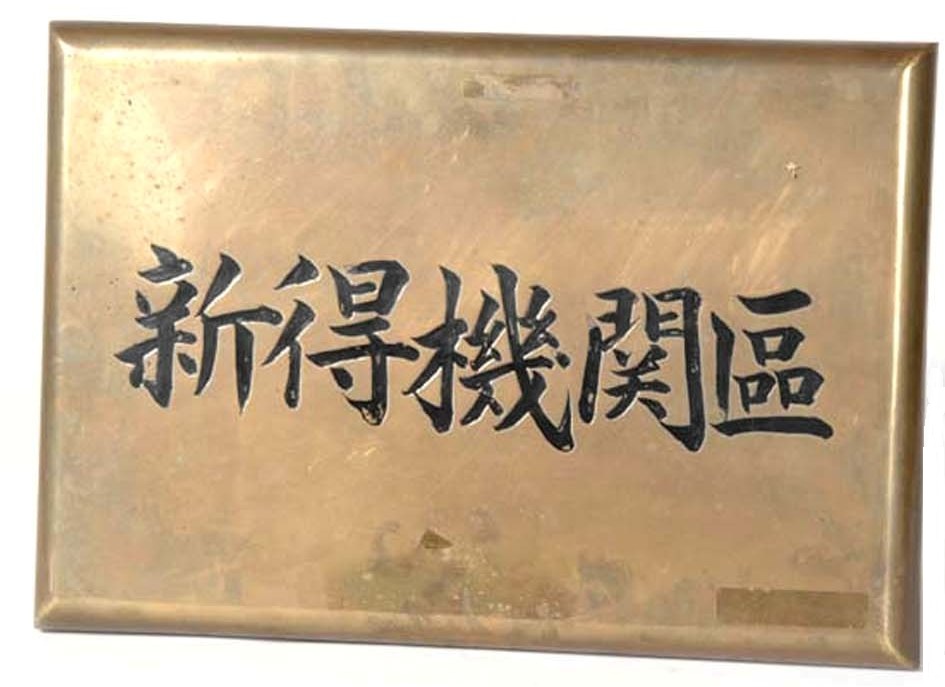 新得機関區